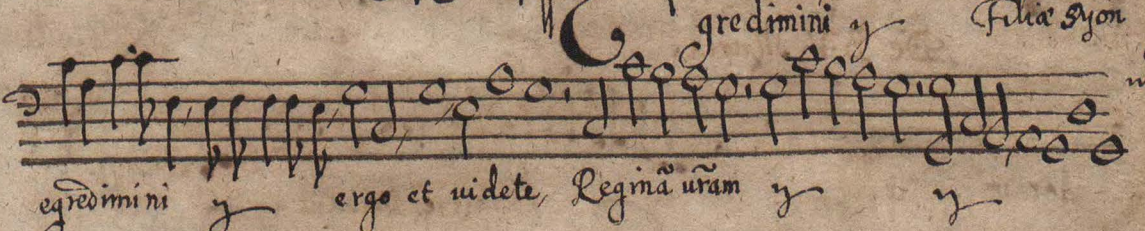 Egredimini ꝝ Filiæ Syon
egrēdimini ꝝ ergo et uidete, Reginā ur̄am ꝝ ꝝ